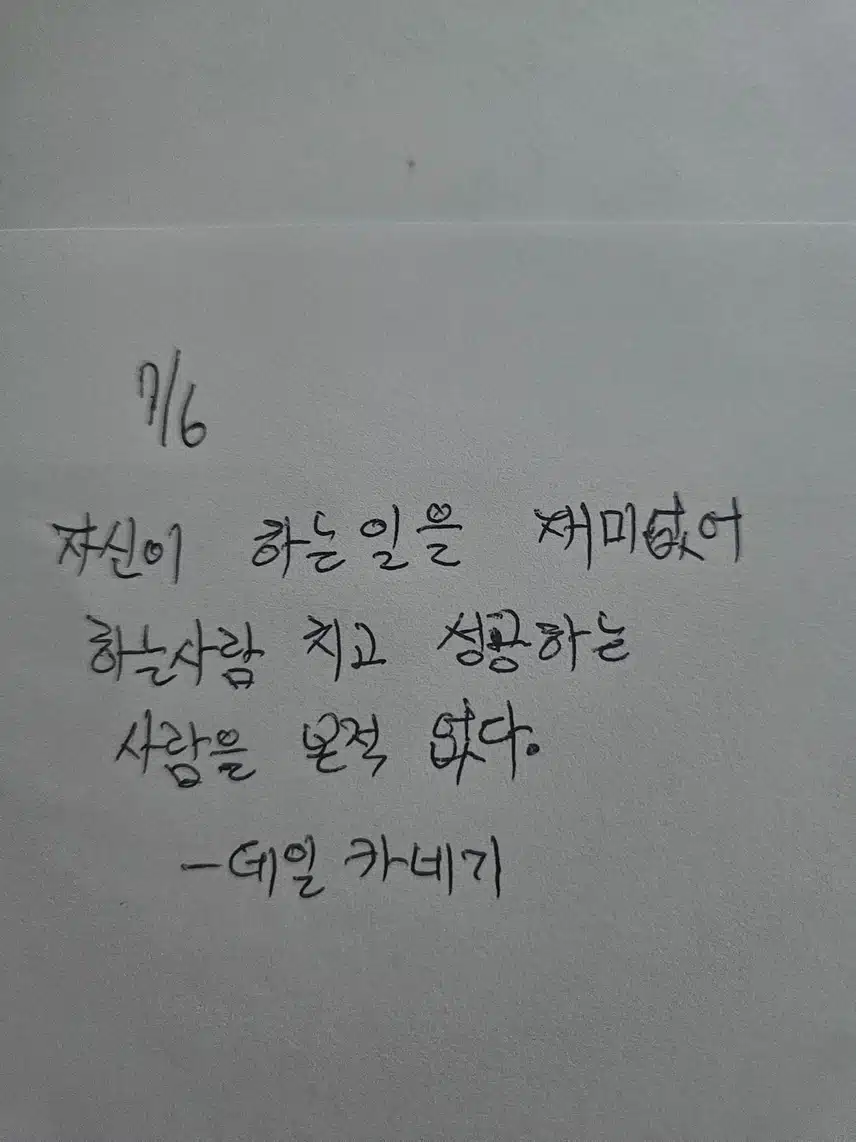 7/6
자신이 하는일을 재미없어
하는사람 치고 성공하는
사람을 본적 없다.
-데일 카네기